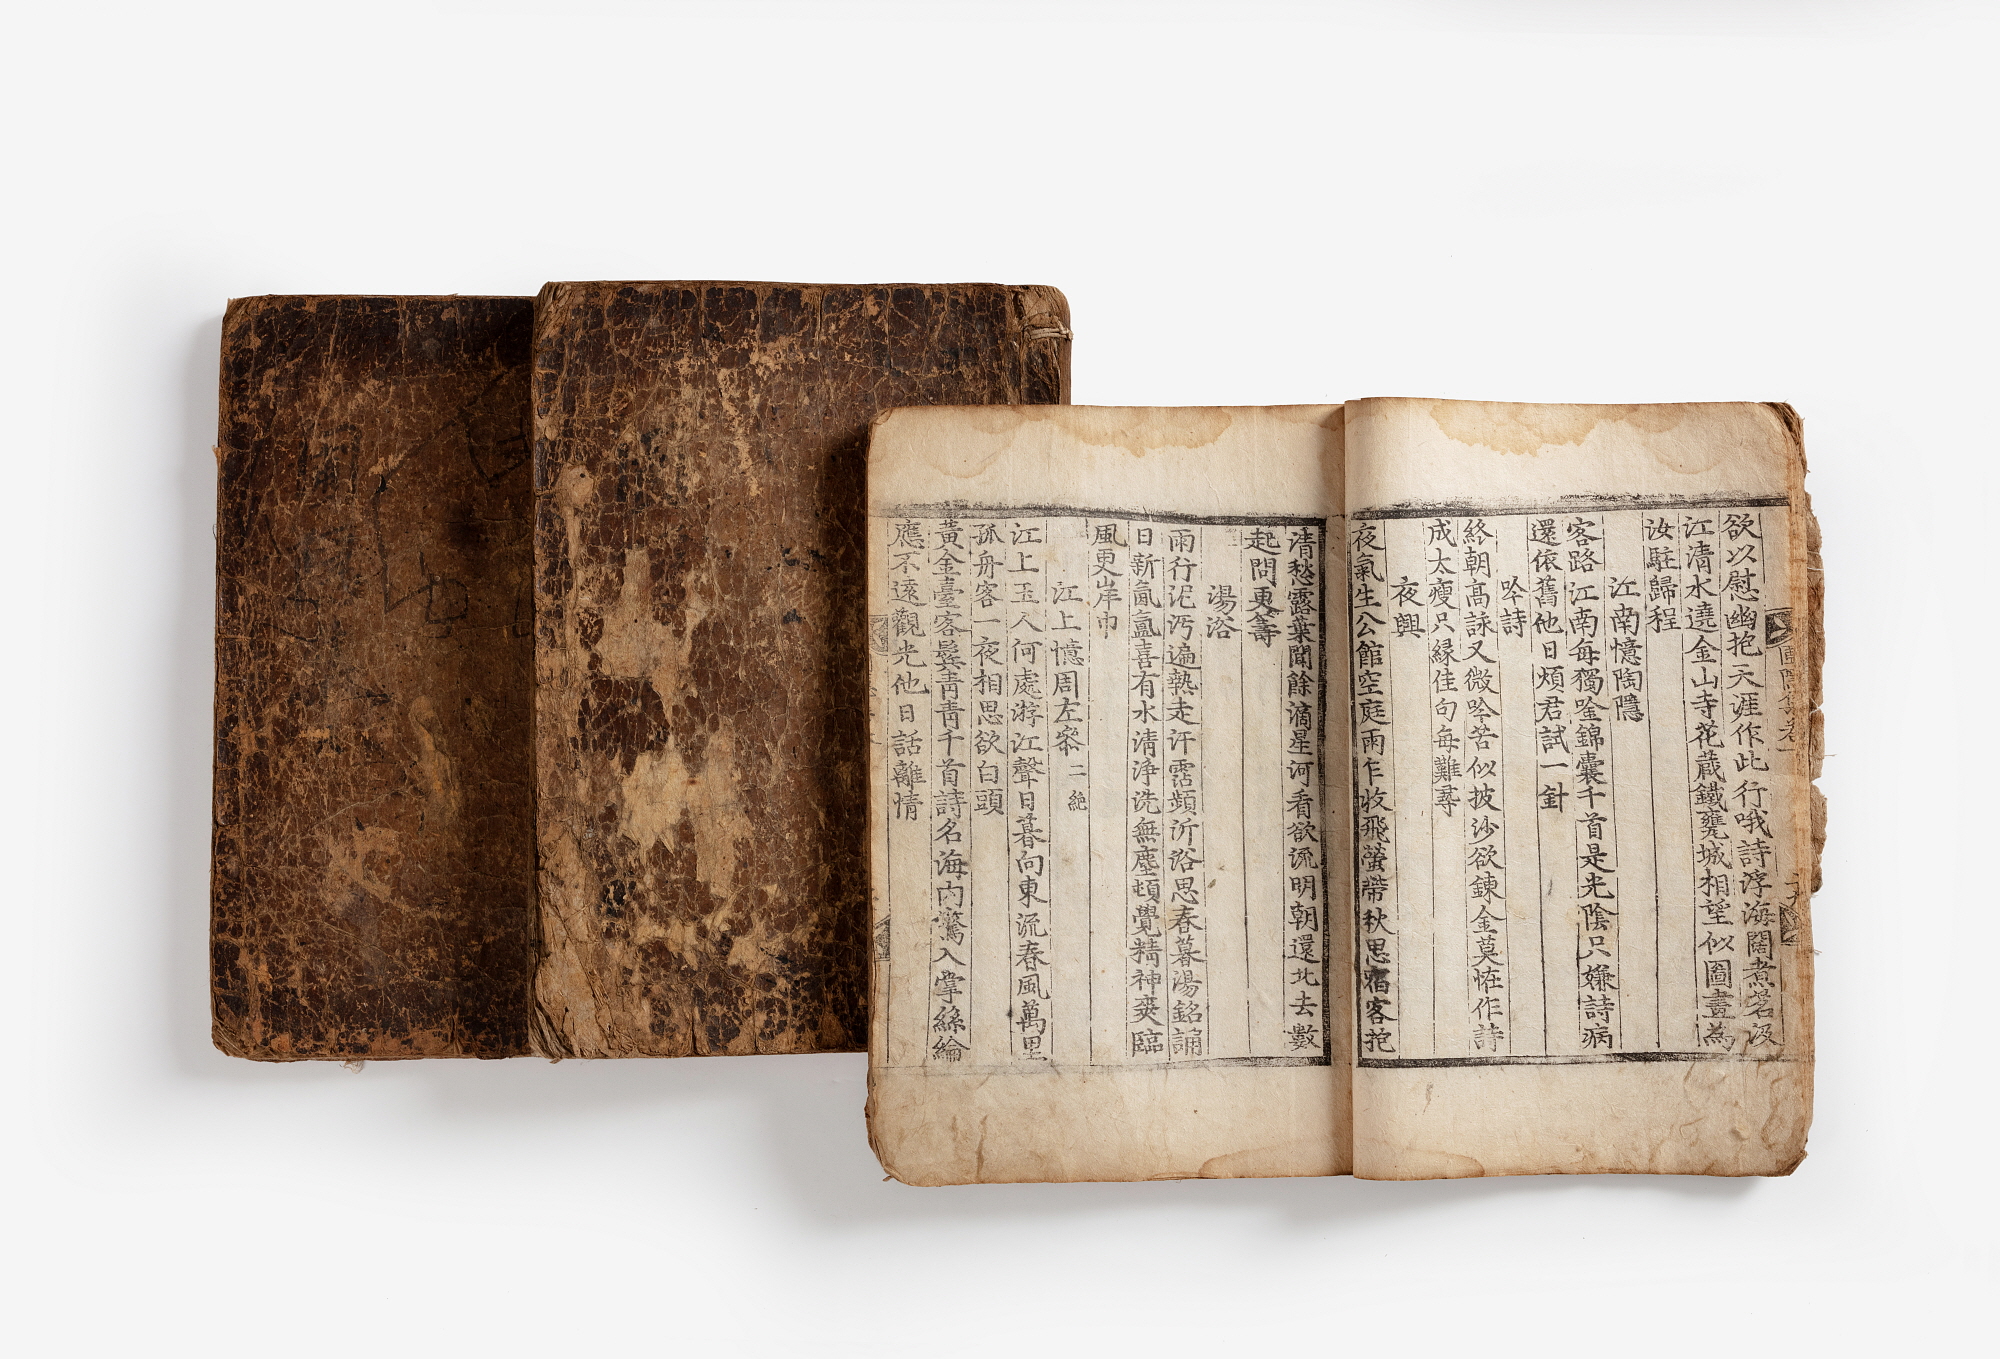 欲以慰幽抱天涯作此行哦詩浮海闊煮茗汲
江清水遶金山寺花藏鐵甕城相望似圖畫爲
汝駐歸程
江南憶陶隱
客路江南每獨唫錦囊千首是光陰只嫌詩病
還依舊他日煩君試一針
吟詩
終朝高詠又微吟苦似披沙欲鍊金莫恠作詩
成太瘦只緣佳句每難尋
夜興
夜氣生公館空庭雨乍收飛螢帶秋思宿客抱
清愁露葉聞餘滴星河看欲流明朝還北去數
起問更籌
湯浴
雨行泥沔遍熱走汗霑頻沂浴思春暮湯銘誦
日新氤氳喜有水清淨洗無塵頓覺精神爽臨
風更岸巾
江上憶周左叅 二絶
江上玉人何處游江聲日暮向東流春風萬里
孤舟客一夜相思欲白頭
黃金臺客鬂靑靑千首詩名海內驚入掌絲綸
應不遠觀光他日話離情